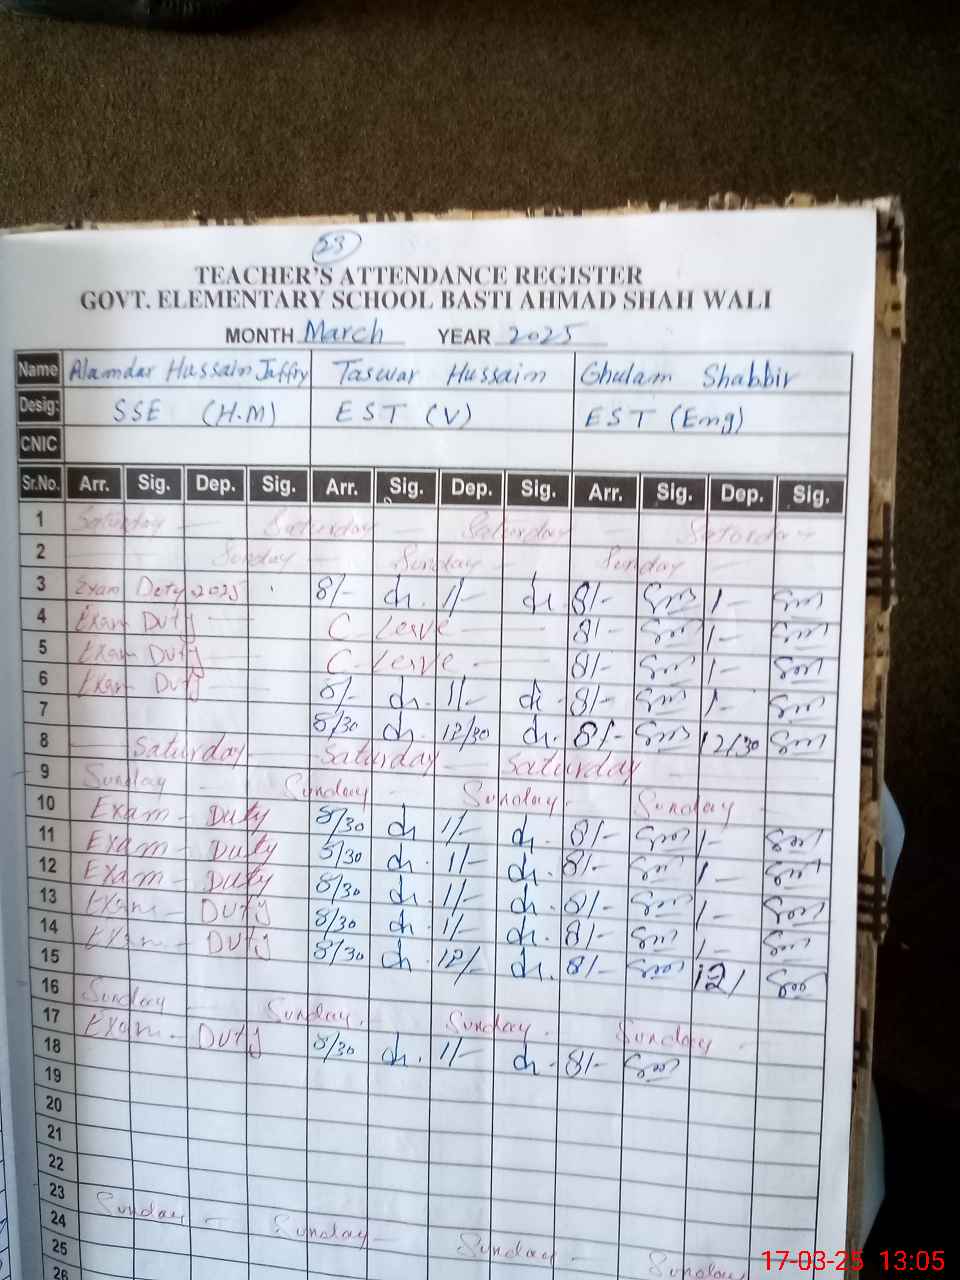 23
TEACHER'S ATTENDANCE REGISTER
GOVT. ELEMENTARY SCHOOL BASTI AHMAD SHAH WALI
MONTH March YEAR 2025
Name Alamdar Hussain Jaffry Taswar Hussain Ghulam Shabbir
Desig: SSE (H.M) EST (V) EST (Eng)
CNIC
Sr.No. Arr. Sig. Dep. Sig. Arr. Sig. Dep. Sig. Arr. Sig. Dep. Sig.
1 Saturday — Saturday — Saturday — Saturday —
2 — Sunday — Sunday — Sunday —
3 Exam Duty 2025 8/- 1/- 8/- 1-
4 Exam Duty — C Leave — 8/- 1-
5 Exam Duty — C Leave — 8/- 1-
6 Exam Duty — 8/- 1/- 8/- 1-
7 8/30 12/30 8/- 12/30
8 — Saturday — Saturday — Saturday —
9 Sunday — Sunday — Sunday — Sunday —
10 Exam - Duty 8/30 1/- 8/- 1-
11 Exam - Duty 8/30 1/- 8/- 1-
12 Exam - Duty 8/30 1/- 8/- 1-
13 Exam - Duty 8/30 1/- 8/- 1-
14 Exam - Duty 8/30 12/- 8/- 12/
15
16 Sunday — Sunday. Sunday. Sunday -
17 Exam - Duty 8/30 1/- 8/-
18
19
20
21
22
23 Sunday — Sunday — Sunday — Sunday
24
25
26
17-03-25 13:05